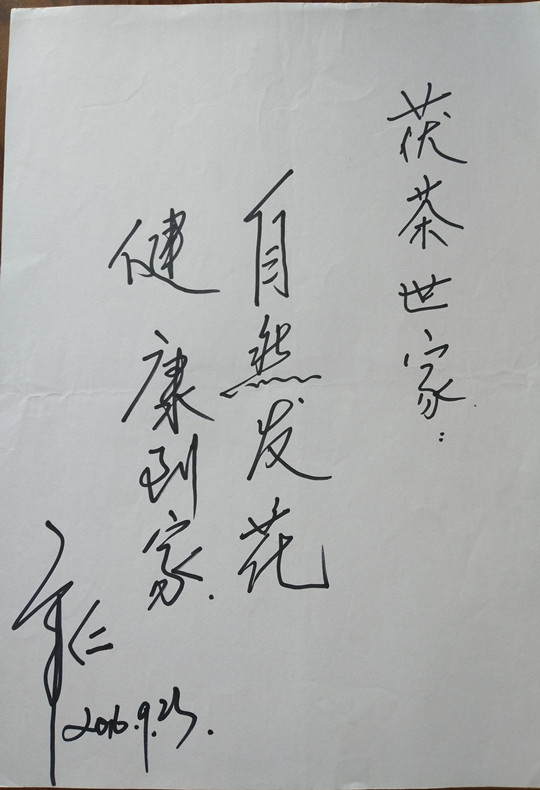 茯茶世家:
自然发花
健康到家.
2016.9.23.